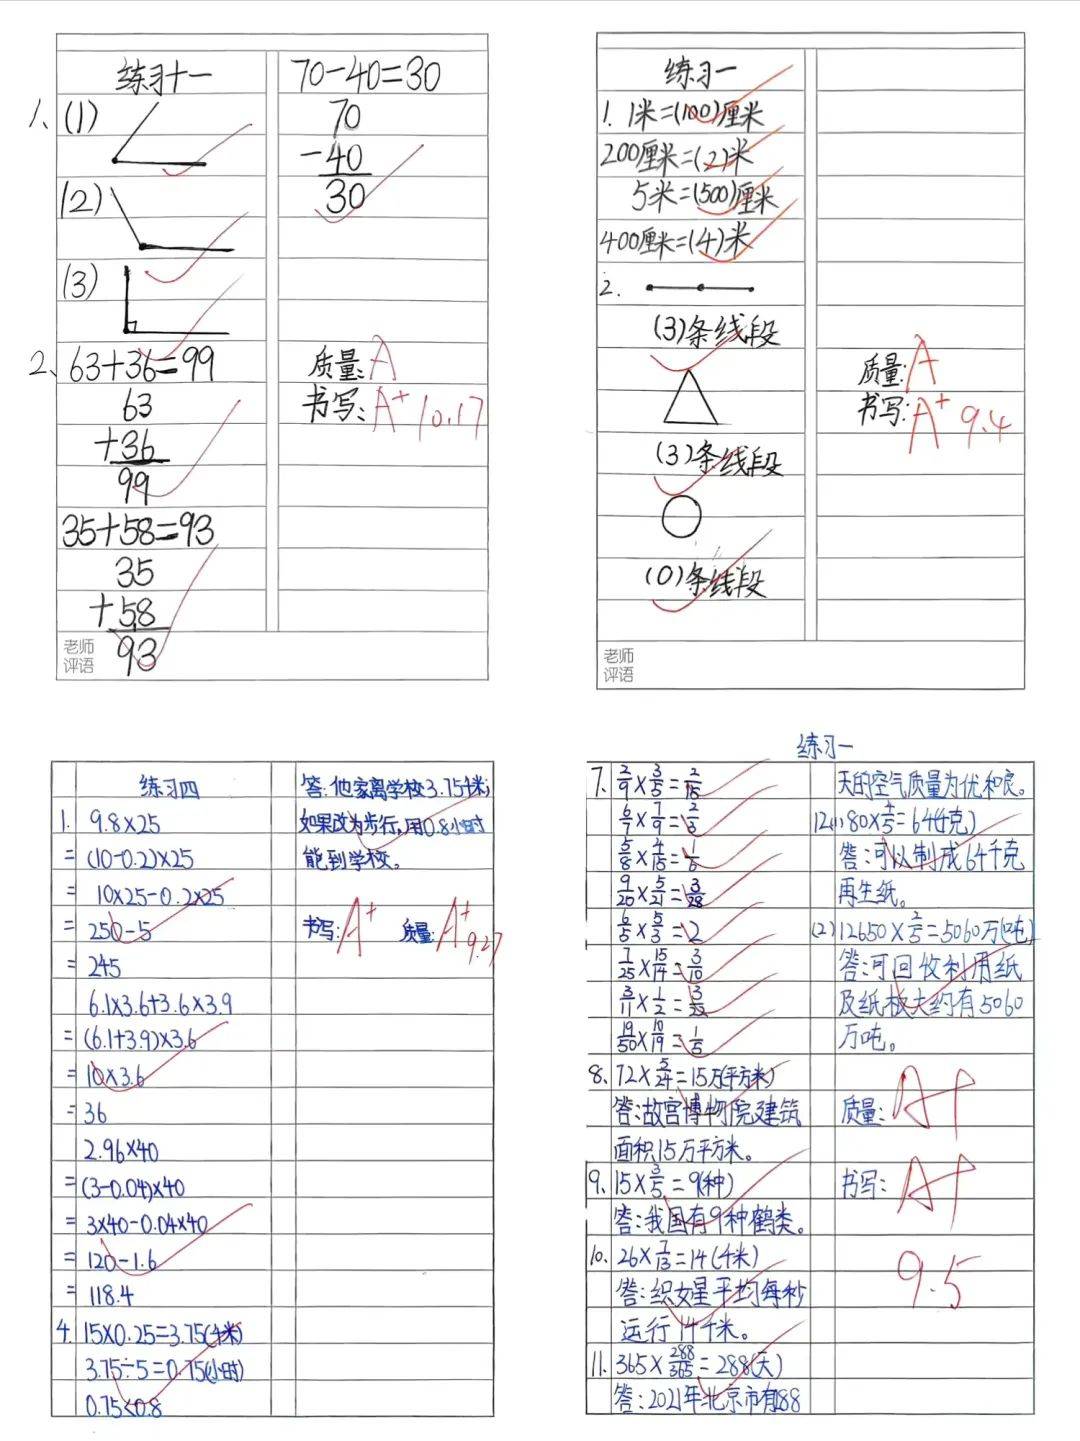 练习十一
1、(1)
(2)
(3)
2、63+36=99
63
+36
99
35+58=93
35
+58
93
老师
评语
70-40=30
70
-40
30
质量:A
书写:A+ 10.17
练习一
1. 1米=(100)厘米
200厘米=(2)米
5米=(500)厘米
400厘米=(4)米
2.
(3)条线段
(3)条线段
(0)条线段
老师
评语
质量:A
书写:A+ 9.4
练习四
1. 9.8×25
=(10-0.2)×25
= 10×25-0.2×25
= 250-5
= 245
6.1×3.6+3.6×3.9
=(6.1+3.9)×3.6
= 10×3.6
= 36
2.96×40
=(3-0.04)×40
= 3×40-0.04×40
= 120-1.6
= 118.4
4. 15×0.25=3.75(千米)
3.75÷5=0.75(小时)
0.75<0.8
答:他家离学校3.75千米;
如果改为步行,用0.8小时
能到学校。
书写:A+ 质量:A+ 9.27
练习一
7. 2/9×3/5=2/15
6/7×7/9=2/3
5/8×4/15=1/6
9/20×5/21=3/28
6/5×5/3=2
7/25×15/14=3/10
3/11×1/2=3/22
19/50×10/19=1/5
8. 72×5/24=15万(平方米)
答:故宫博物院建筑
面积15万平方米。
9. 15×3/5=9(种)
答:我国有9种鹤类。
10. 26×7/13=14(千米)
答:织女星平均每秒
运行14千米。
11. 365×288/365=288(天)
答:2021年北京市有288
天的空气质量为优和良。
12(1)80×4/5=64(千克)
答:可以制成64千克
再生纸。
(2)12650×2/5=5060万(吨)
答:可回收利用纸
及纸板大约有5060
万吨。
质量:A+
书写:A+
9.5